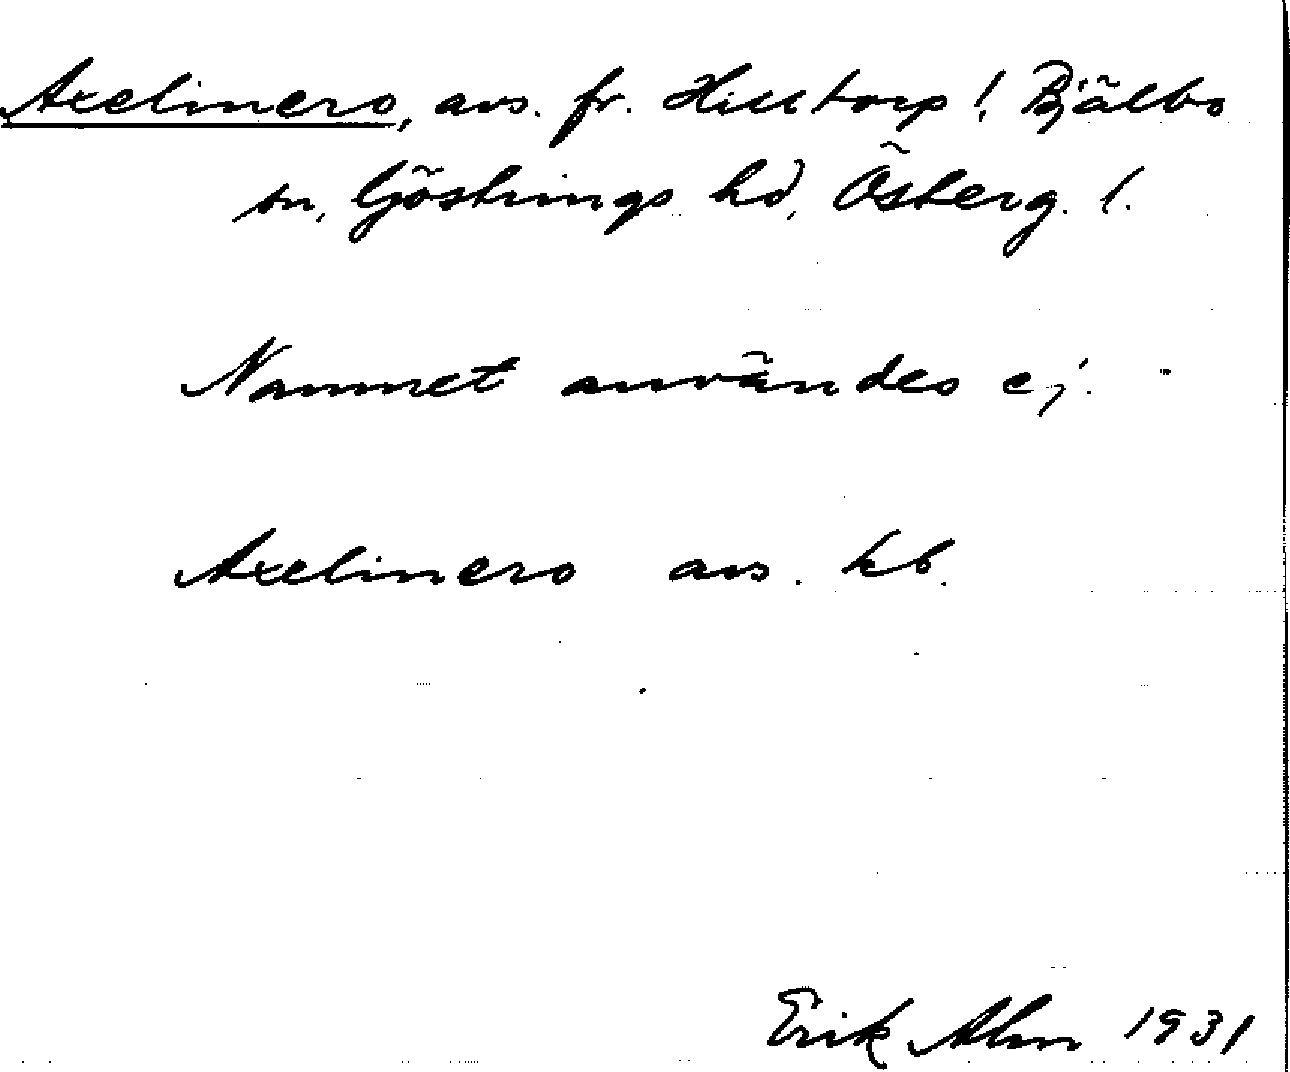 Axelinero, avs. fr. Hilltorp i Bjälbo
sn, Göstrings hd, Österg. l.
Namnet användes ej.
Axelinero avs. kb.
Erik Alm 1931